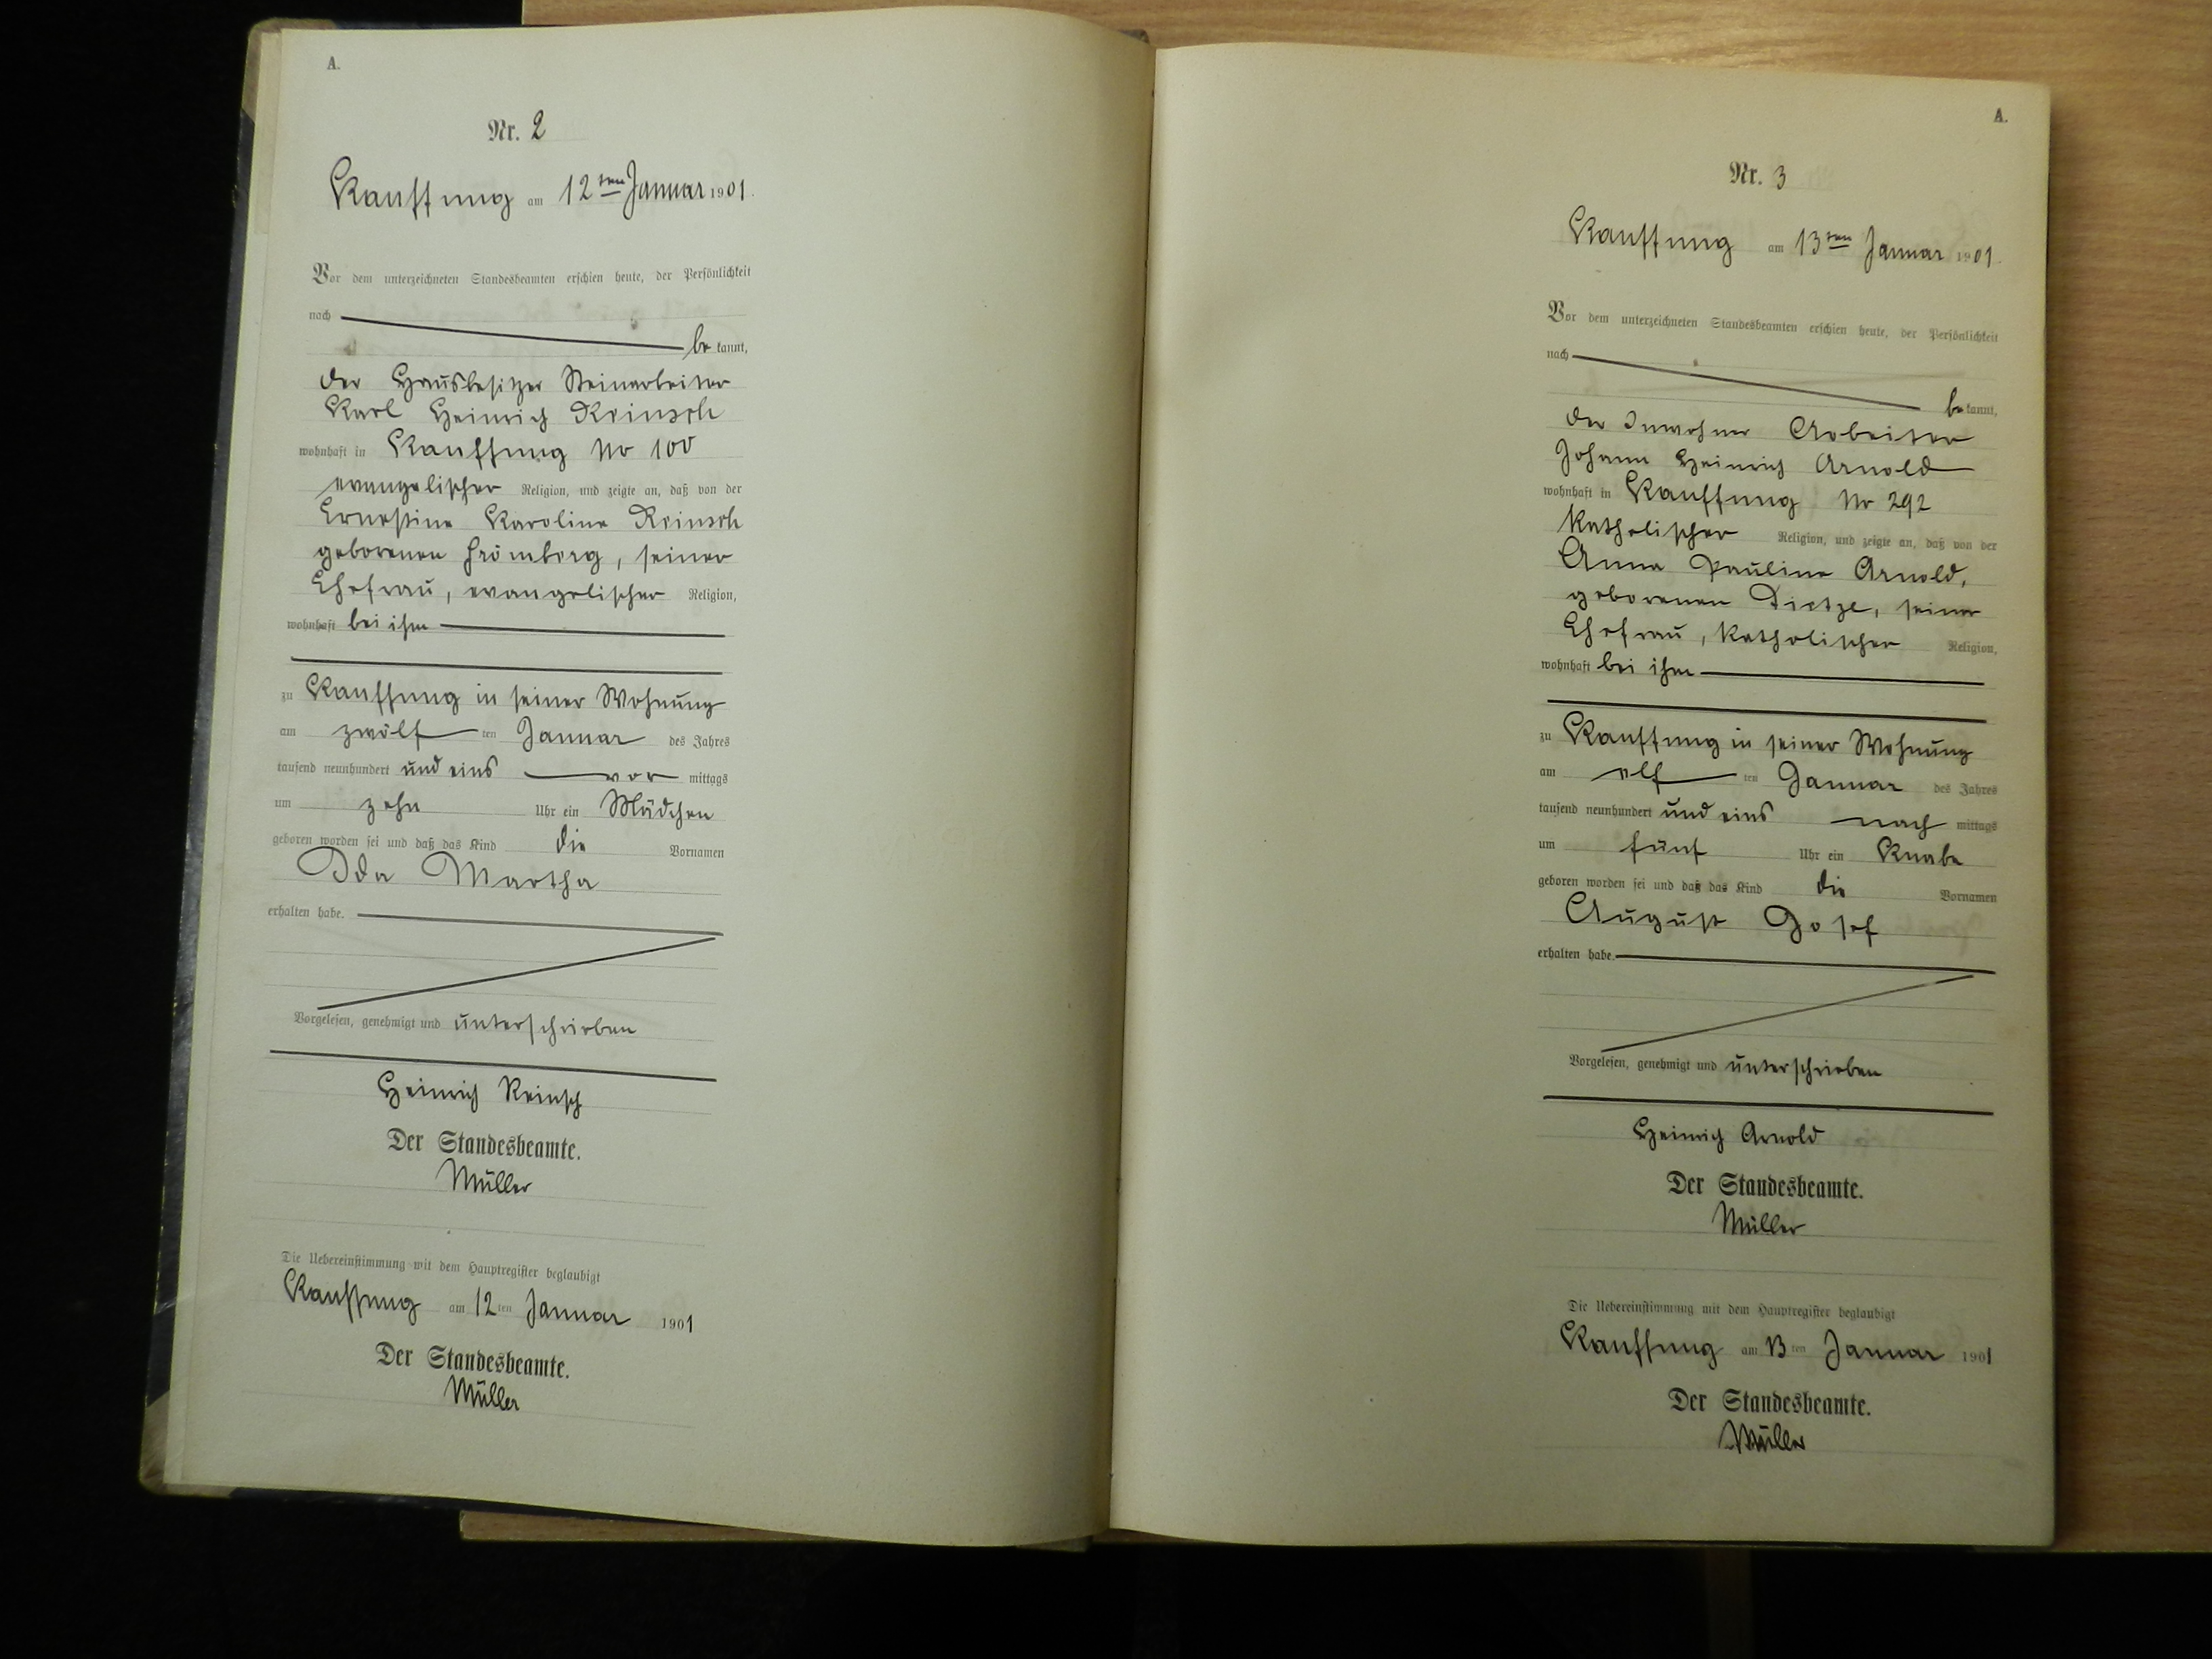 A.
Nr. 2
Kauffung am 12ten Januar 1901.
Vor dem unterzeichneten Standesbeamten erschien heute, der Persönlichkeit
nach
be kannt,
der Hausbesitzer Steinarbeiter
Karl Heinrich Reinsch
wohnhaft in Kauffung No 100
evangelischer Religion, und zeigte an, daß von der
Ernestine Karoline Reinsch
geborenen Frömberg, seiner
Ehefrau, evangelischer Religion,
wohnhaft bei ihm
zu Kauffung in seiner Wohnung
am zwölf ten Januar des Jahres
tausend neunhundert und eins vor mittags
um zehn Uhr ein Mädchen
geboren worden sei und daß das Kind die Vornamen
Ida Martha
erhalten habe.
Vorgelesen, genehmigt und unterschrieben
Heinrich Reinsch
Der Standesbeamte.
Müller
Die Uebereinstimmung mit dem Hauptregister beglaubigt
Kauffung am 12ten Januar 1901
Der Standesbeamte.
Müller
A.
Nr. 3
Kauffung am 13ten Januar 1901.
Vor dem unterzeichneten Standesbeamten erschien heute, der Persönlichkeit
nach
be kannt,
der Inwohner Arbeiter
Johann Heinrich Arnold
wohnhaft in Kauffung No 292
katholischer Religion, und zeigte an, daß von der
Anna Pauline Arnold,
geborenen Dietze, seiner
Ehefrau, katholischer Religion,
wohnhaft bei ihm
zu Kauffung in seiner Wohnung
am elf ten Januar des Jahres
tausend neunhundert und eins nach mittags
um fünf Uhr ein Knabe
geboren worden sei und daß das Kind die Vornamen
August Josef
erhalten habe.
Vorgelesen, genehmigt und unterschrieben
Heinrich Arnold
Der Standesbeamte.
Müller
Die Uebereinstimmung mit dem Hauptregister beglaubigt
Kauffung am 13ten Januar 1901
Der Standesbeamte.
Müller